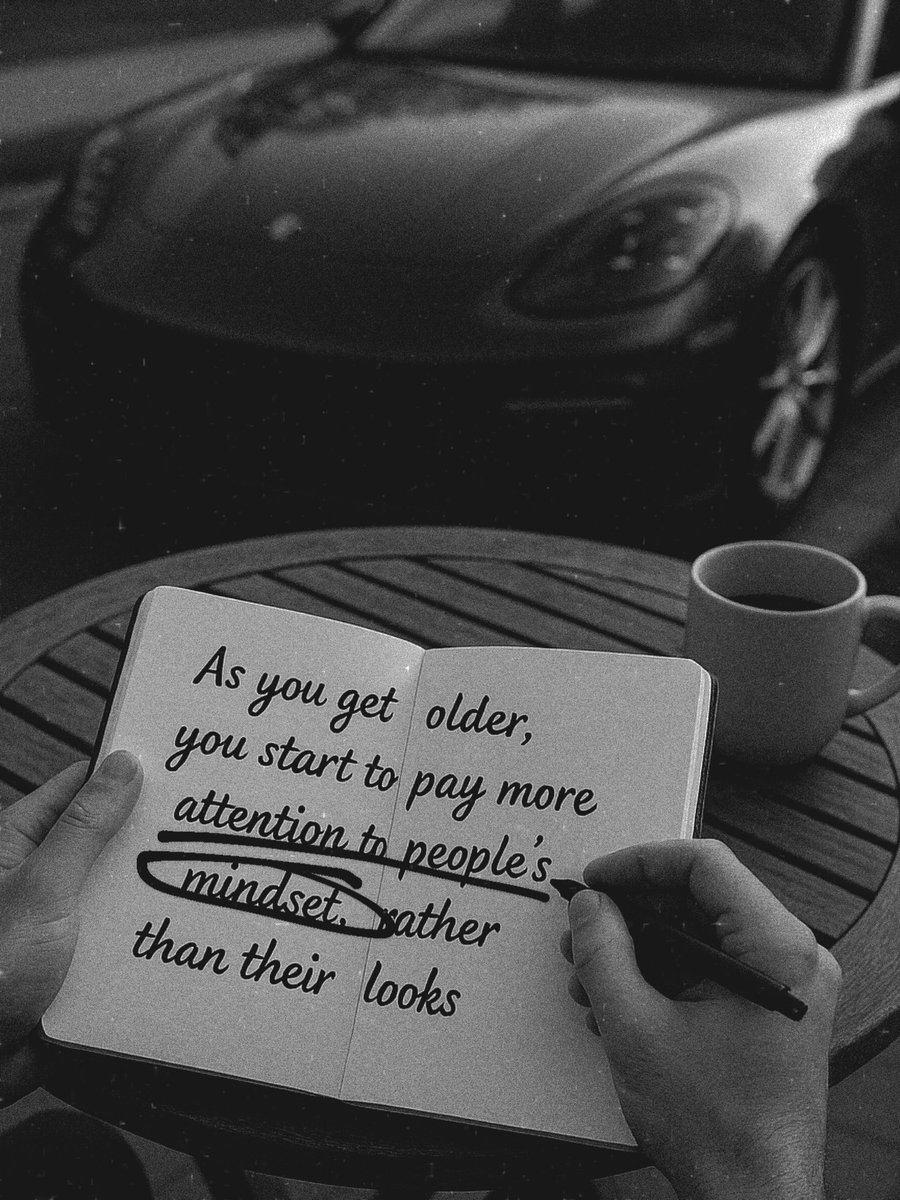 As you get older,
you start to pay more
attention to people's
mindset, rather
than their looks